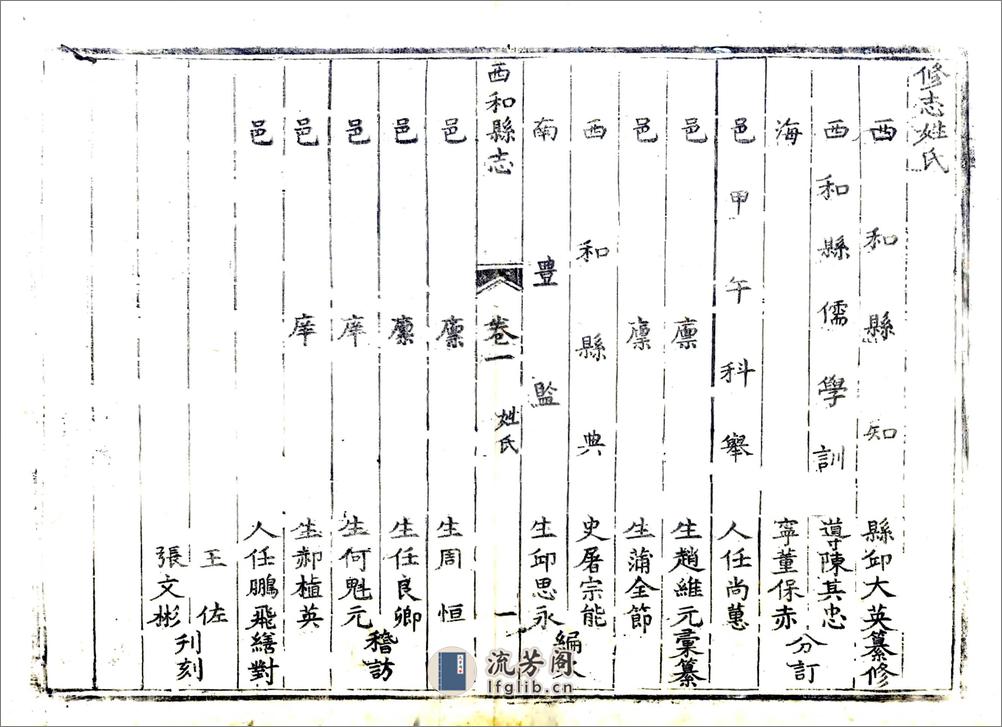 修志姓氏
西和縣知縣邱大英纂修
西和縣儒學訓導陳其忠
海寧董保赤
分訂
邑甲午科舉人任尚蕙
邑廪生趙維元彙纂
邑廪生蒲全節
西和縣典史屠宗能
南豊監生邱思永
編
西和縣志
卷一
姓氏
一
邑廪生周恒
邑廪生任良卿
邑庠生何魁元
稽訪
邑庠生郝植英
邑人任鵬飛繕對
王佐
張文彬
刊刻
流芳阁
lfglib.cn